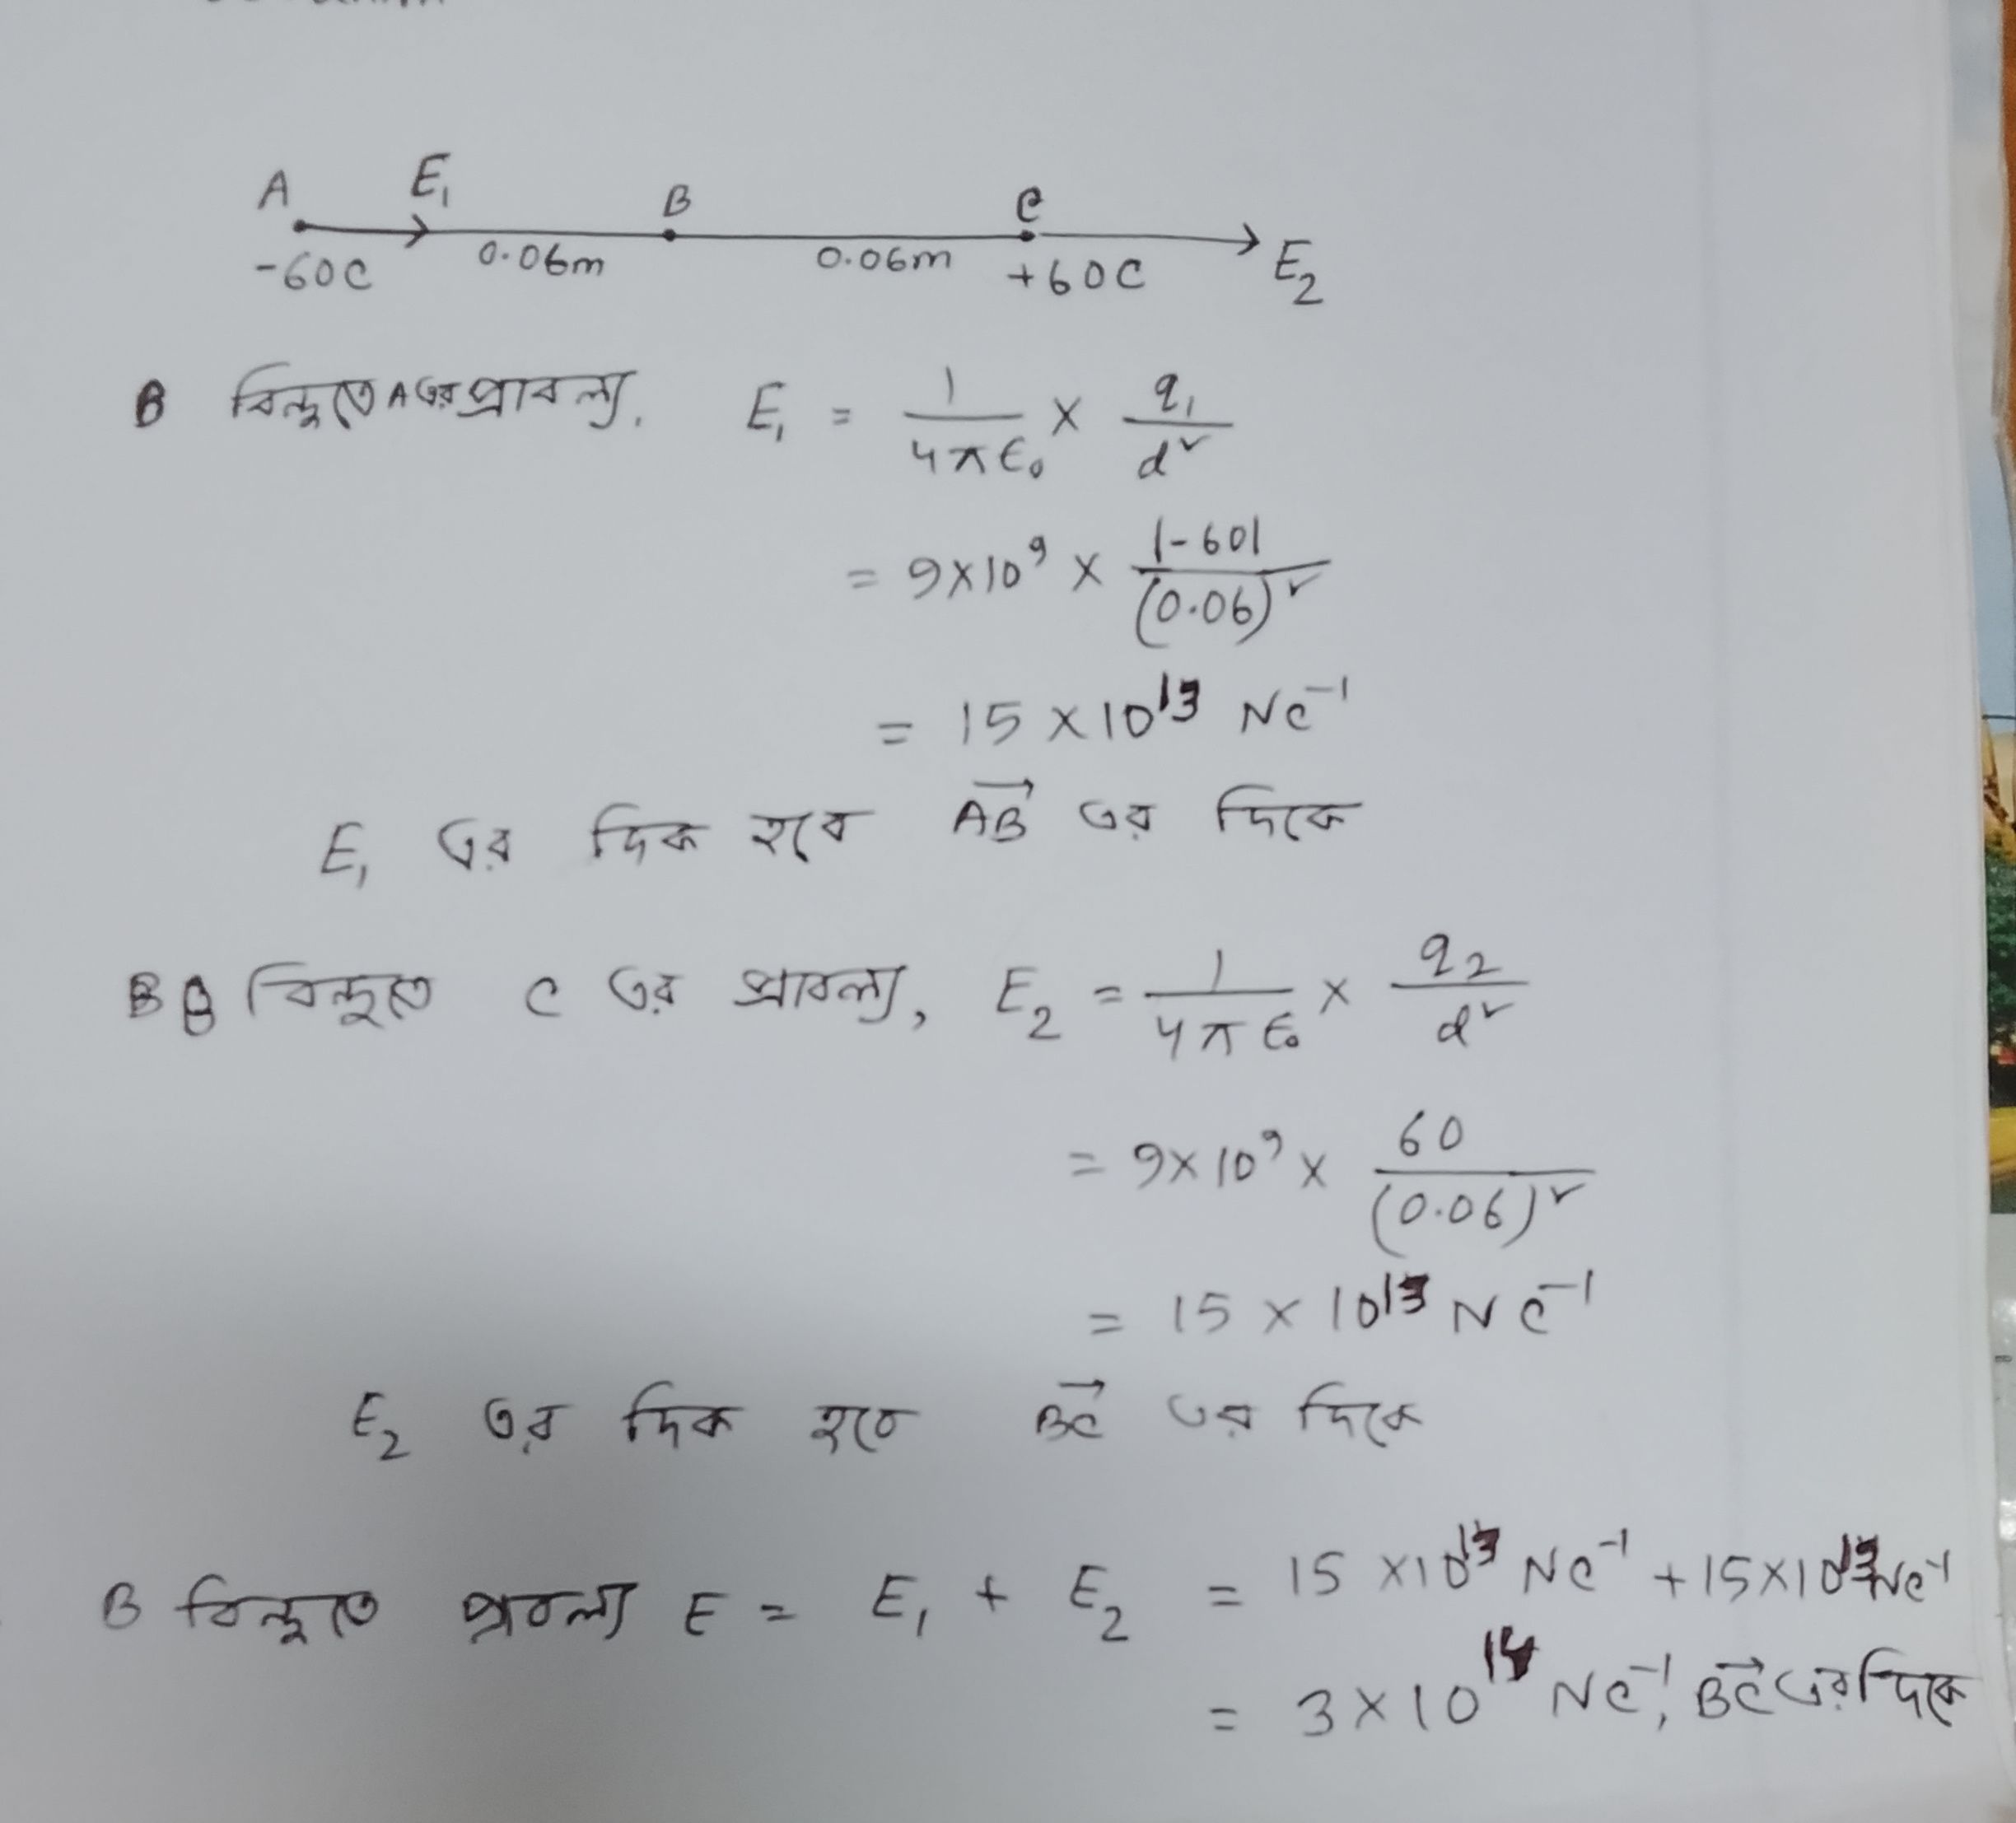 A E₁ B C
-60C 0.06m 0.06m +60C E₂
B বিন্দুতে A এর প্রাবল্য, E₁ = 1/4πϵ₀ × q₁/d²
= 9×10⁹ × |-60|/(0.06)²
= 15×10¹³ NC⁻¹
E₁ এর দিক হবে AB→ এর দিকে
B B বিন্দুতে C এর প্রাবল্য, E₂ = 1/4πϵ₀ × q₂/d²
= 9×10⁹ × 60/(0.06)²
= 15×10¹³ NC⁻¹
E₂ এর দিক হবে BC→ এর দিকে
B বিন্দুতে প্রাবল্য E = E₁ + E₂ = 15×10¹³ NC⁻¹ + 15×10¹³ NC⁻¹
= 3×10¹⁴ NC⁻¹, BC→ এর দিকে